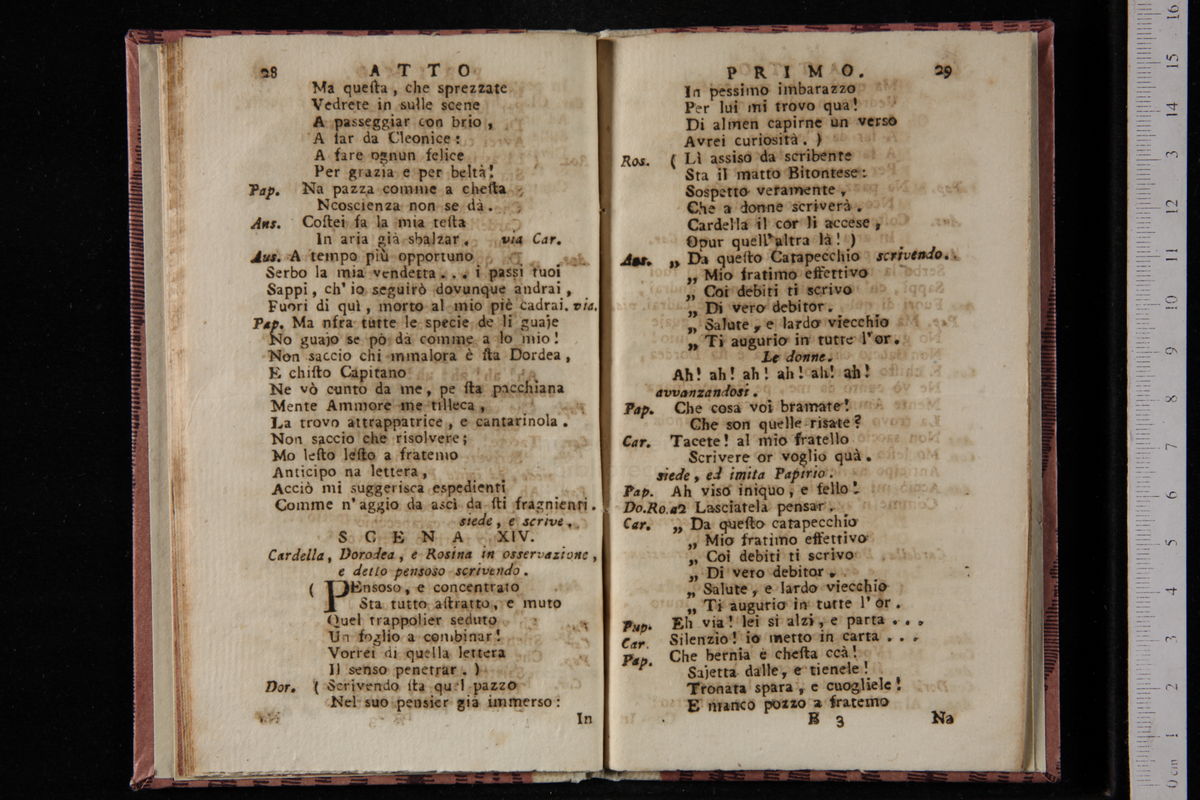 28 ATTO
Ma queſta , che sprezzate
Vedrete in sulle scene
A passeggiar con brio ,
A far da Cleonice :
A fare ognun felice
Per grazia e per beltà!
Pap. Na pazza comme a cheſta
Ncoscienza non se dà .
Ans. Coſtei fa la mia teſta
In aria già sbalzar . via Car.
Aus. A tempo più opportuno
Serbo la mia vendetta . . . i passi tuoi
Sappi , ch' io seguirò dovunque andrai ,
Fuori di quì , morto al mio piè cadrai. via.
Pap. Ma nfra tutte le specie de li guaje
No guajo se pò dà comme a lo mio !
Non saccio chi mmalora è ſta Dordea ,
E chiſto Capitano
Ne vò cunto da me , pe ſta pacchiana
Mente Ammore me tilleca ,
La trovo attrappatrice , e cantarinola .
Non saccio che risolvere ;
Mo leſto leſto a fratemo
Anticipo na lettera ,
Acciò mi suggerisca espedienti
Comme n' aggio da ascì da ſti fragnienti .
siede , e scrive .
SCENA XIV.
Cardella , Dorodea , e Rosina in osservazione ,
e detto pensoso scrivendo .
( PEnsoso , e concentrato
Sta tutto aſtratto , e muto
Quel trappolier seduto
Un foglio a combinar !
Vorrei di quella lettera
Il senso penetrar . )
Dor. ( Scrivendo ſta quel pazzo
Nel suo pensier già immerso :
In
PRIMO. 29
In pessimo imbarazzo
Per lui mi trovo quà !
Di almen capirne un verso
Avrei curiosità . )
Ros. ( Lì assiso da scribente
Sta il matto Bitontese :
Sospetto veramente ,
Che a donne scriverà .
Cardella il cor li accese ,
Opur quell' altra là ! )
„ Da queſto Catapecchio scrivendo .
„ Mio fratimo effettivo
„ Coi debiti ti scrivo
„ Di vero debitor .
„ Salute , e lardo viecchio
„ Ti augurio in tutte l' or .
Le donne .
Ah ! ah ! ah ! ah ! ah ! ah !
avvanzandosi .
Pap. Che cosa voi bramate !
Che son quelle risate ?
Car. Tacete ! al mio fratello
Scrivere or voglio quà .
siede , ed imita Papirio .
Pap. Ah viso iniquo , e fello !
Do.Ro.a2 Lasciatela pensar .
Car. „ Da queſto catapecchio
„ Mio fratimo effettivo
„ Coi debiti ti scrivo
„ Di vero debitor .
„ Salute , e lardo viecchio
„ Ti augurio in tutte l' or .
Pap. Eh via ! lei si alzi , e parta . . .
Car. Silenzio ! io metto in carta . . .
Pap. Che bernia è cheſta ccà !
Sajetta dalle , e tienele !
Tronata spara , e cuogliele !
E manco pozzo a fratemo
B 3 Na